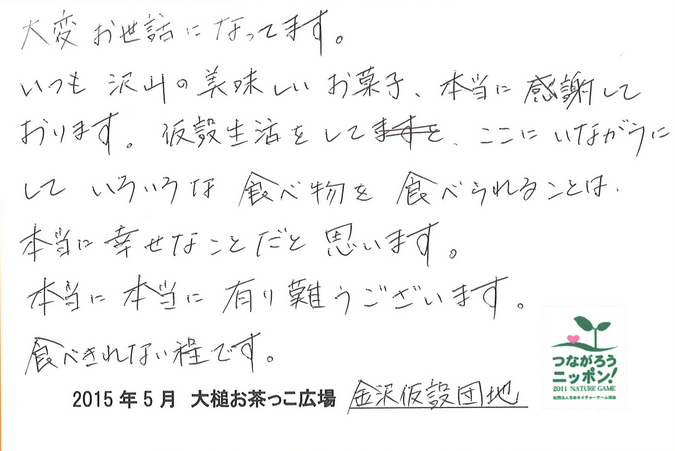 大変お世話になってます。
いつも沢山の美味しいお菓子、本当に感謝して
おります。仮設生活をしてますと、ここにいながらに
していろいろな食べ物を食べられることは、
本当に幸せなことだと思います。
本当に本当に有り難うございます。
食べきれない程です。
2015年5月 大槌お茶っこ広場 金沢仮設団地
つながろう
ニッポン!
2011 NATURE GAME
社団法人日本ネイチャーゲーム協会